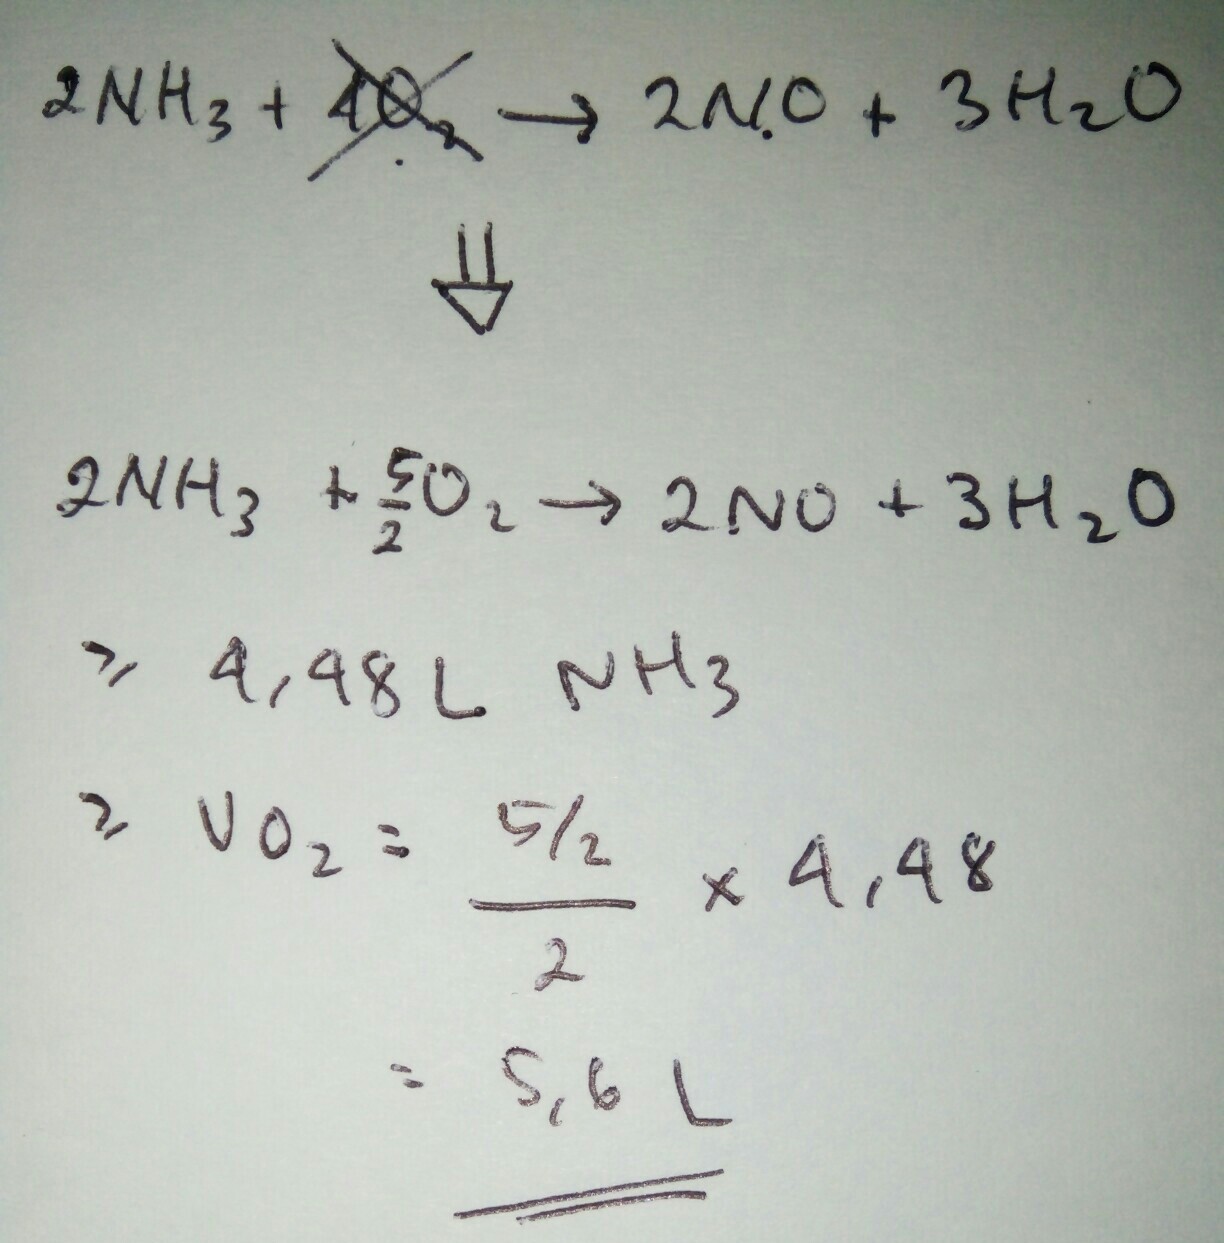 2NH3 + 4O2 → 2NO + 3H2O
2NH3 + 5/2 O2 → 2NO + 3H2O
> 4,48 L NH3
> VO2 = 5/2 / 2 x 4,48
= 5,6 L